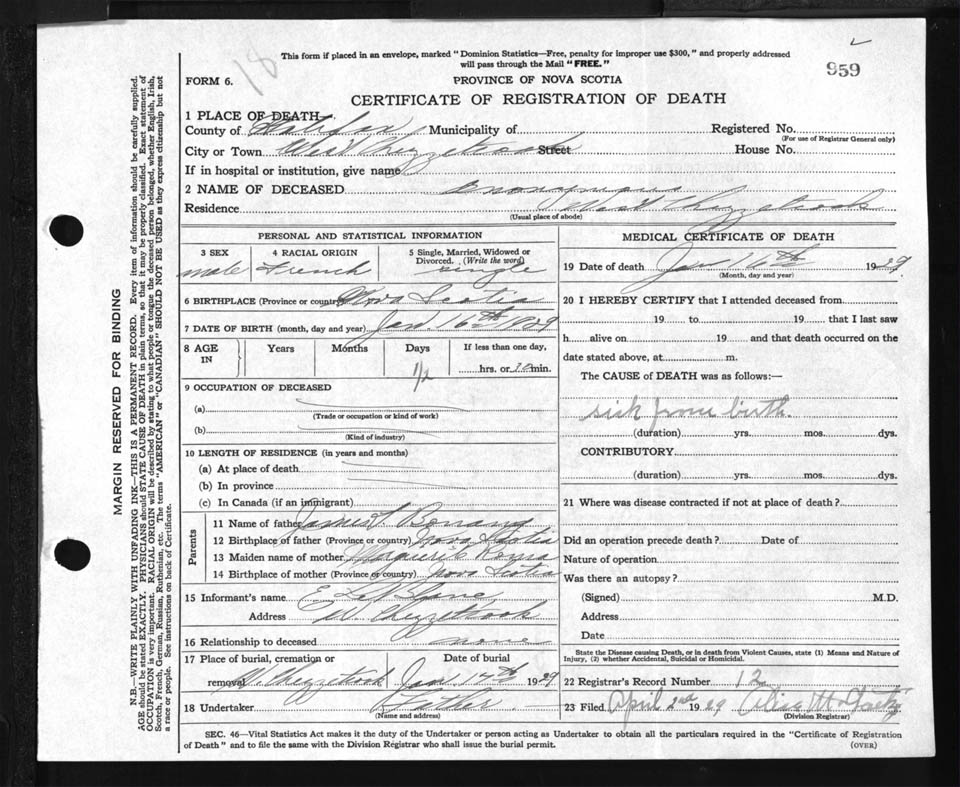 18
This form if placed in an envelope, marked "Dominion Statistics—Free, penalty for improper use $300," and properly addressed
will pass through the Mail "FREE."
959
FORM 6.
PROVINCE OF NOVA SCOTIA
CERTIFICATE OF REGISTRATION OF DEATH
1 PLACE OF DEATH—
County of Halifax Municipality of Registered No.
(For use of Registrar General only)
City or Town West Chezzetcook Street House No.
If in hospital or institution, give name
2 NAME OF DECEASED Anonymous
Residence West Chezzetcook
(Usual place of abode)
PERSONAL AND STATISTICAL INFORMATION
3 SEX 4 RACIAL ORIGIN 5 Single, Married, Widowed or
Divorced. (Write the word)
male French single
6 BIRTHPLACE (Province or country) Nova Scotia
7 DATE OF BIRTH (month, day and year) Jan. 16th 1929
8 AGE IN Years Months Days If less than one day,
1/2 hrs. or 30 min.
9 OCCUPATION OF DECEASED
(a)
(Trade or occupation or kind of work)
(b)
(Kind of industry)
10 LENGTH OF RESIDENCE (in years and months)
(a) At place of death
(b) In province
(c) In Canada (if an immigrant)
Parents
11 Name of father James
12 Birthplace of father (Province or country) Nova Scotia
13 Maiden name of mother Marguerite
14 Birthplace of mother (Province or country) Nova Scotia
15 Informant's name E
Address W. Chezzetcook
16 Relationship to deceased none
17 Place of burial, cremation or Date of burial
removal W. Chezzetcook Jan 17th 1929
18 Undertaker Father
(Name and address)
MEDICAL CERTIFICATE OF DEATH
19 Date of death Jan 16th 1929
(Month, day and year)
20 I HEREBY CERTIFY that I attended deceased from
19 to 19 that I last saw
h alive on 19 and that death occurred on the
date stated above, at m.
The CAUSE of DEATH was as follows:—
sick from birth.
(duration) yrs. mos. dys.
CONTRIBUTORY
(duration) yrs. mos. dys.
21 Where was disease contracted if not at place of death?
Did an operation precede death? Date of
Nature of operation
Was there an autopsy?
(Signed) M.D.
Address
Date
State the Disease causing Death, or in death from Violent Causes, state (1) Means and Nature of
Injury, (2) whether Accidental, Suicidal or Homicidal.
22 Registrar's Record Number 12
23 Filed April 2nd 1929
(Division Registrar)
SEC. 46—Vital Statistics Act makes it the duty of the Undertaker or person acting as Undertaker to obtain all the particulars required in the "Certificate of Registration
of Death" and to file the same with the Division Registrar who shall issue the burial permit.
(OVER)
MARGIN RESERVED FOR BINDING
N.B.—WRITE PLAINLY WITH UNFADING INK—THIS IS A PERMANENT RECORD. Every item of information should be carefully supplied.
AGE should be stated EXACTLY. PHYSICIANS should STATE CAUSE OF DEATH in plain terms, so that it may be properly classified. Exact statement of
OCCUPATION is very important. RACIAL ORIGIN will be described by stating to what people or tongue the deceased person belonged, whether English, Irish,
Scotch, French, German, Russian, Ruthenian, etc. The terms "AMERICAN" or "CANADIAN" SHOULD NOT BE USED as they express citizenship but not
a race or people. See instructions on back of Certificate.